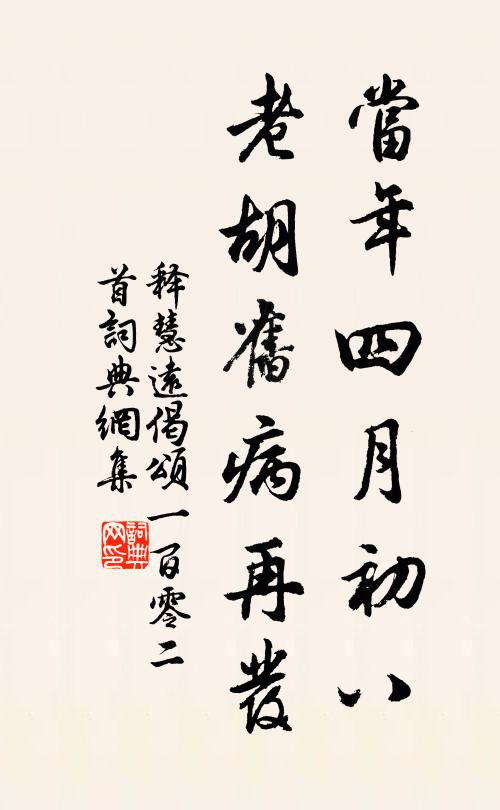 當年四月初八
老胡舊病再發
释慧遠偈頌一百零二
首詞典網集
詞典网印